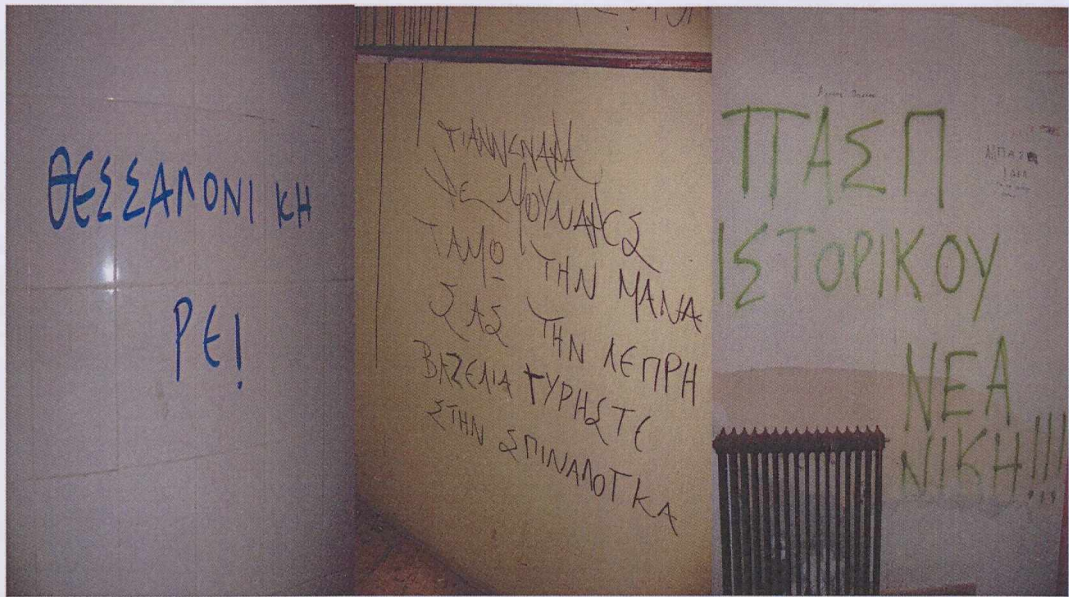 ΘΕΣΣΑΛΟΝΙΚΗ
ΡΕ!
ΓΙΑΝΝΕΝΑΡΑ
ΤΗΝ ΜΑΝΑ
ΣΑΣ ΤΗΝ ΛΕΠΡΗ
ΒΑΖΕΛΙΑ ΓΥΡΗΣΤΕ
ΣΤΗΝ ΣΠΙΝΑΛΟΓΚΑ
ΠΑΣΠ
ΙΣΤΟΡΙΚΟΥ
ΝΕΑ
ΝΙΚΗ!!!